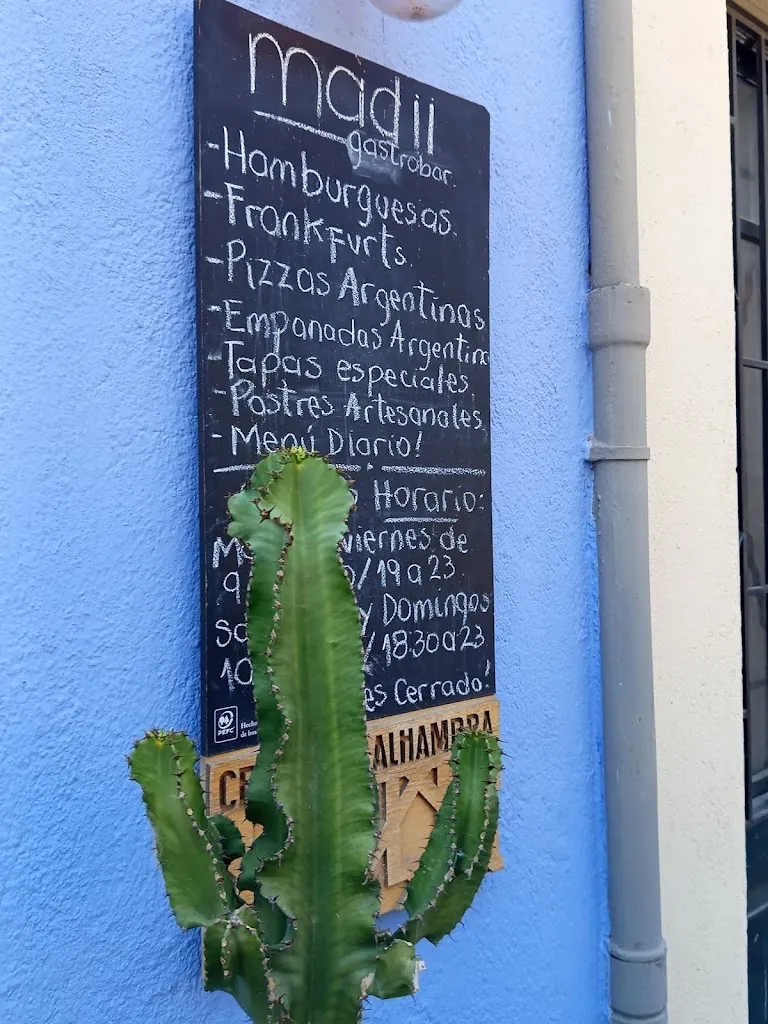 madii
gastrobar.
-Hamburguesas.
-Frankfurts.
-Pizzas Argentinas
-Empanadas Argentina
-Tapas especiales
-Postres Artesanales
-Menú Diario!
Horario:
viernes de
9 /19 a 23
y Domingos
10 /18:30 a 23
Cerrado!
PEFC
ALHAMBRA